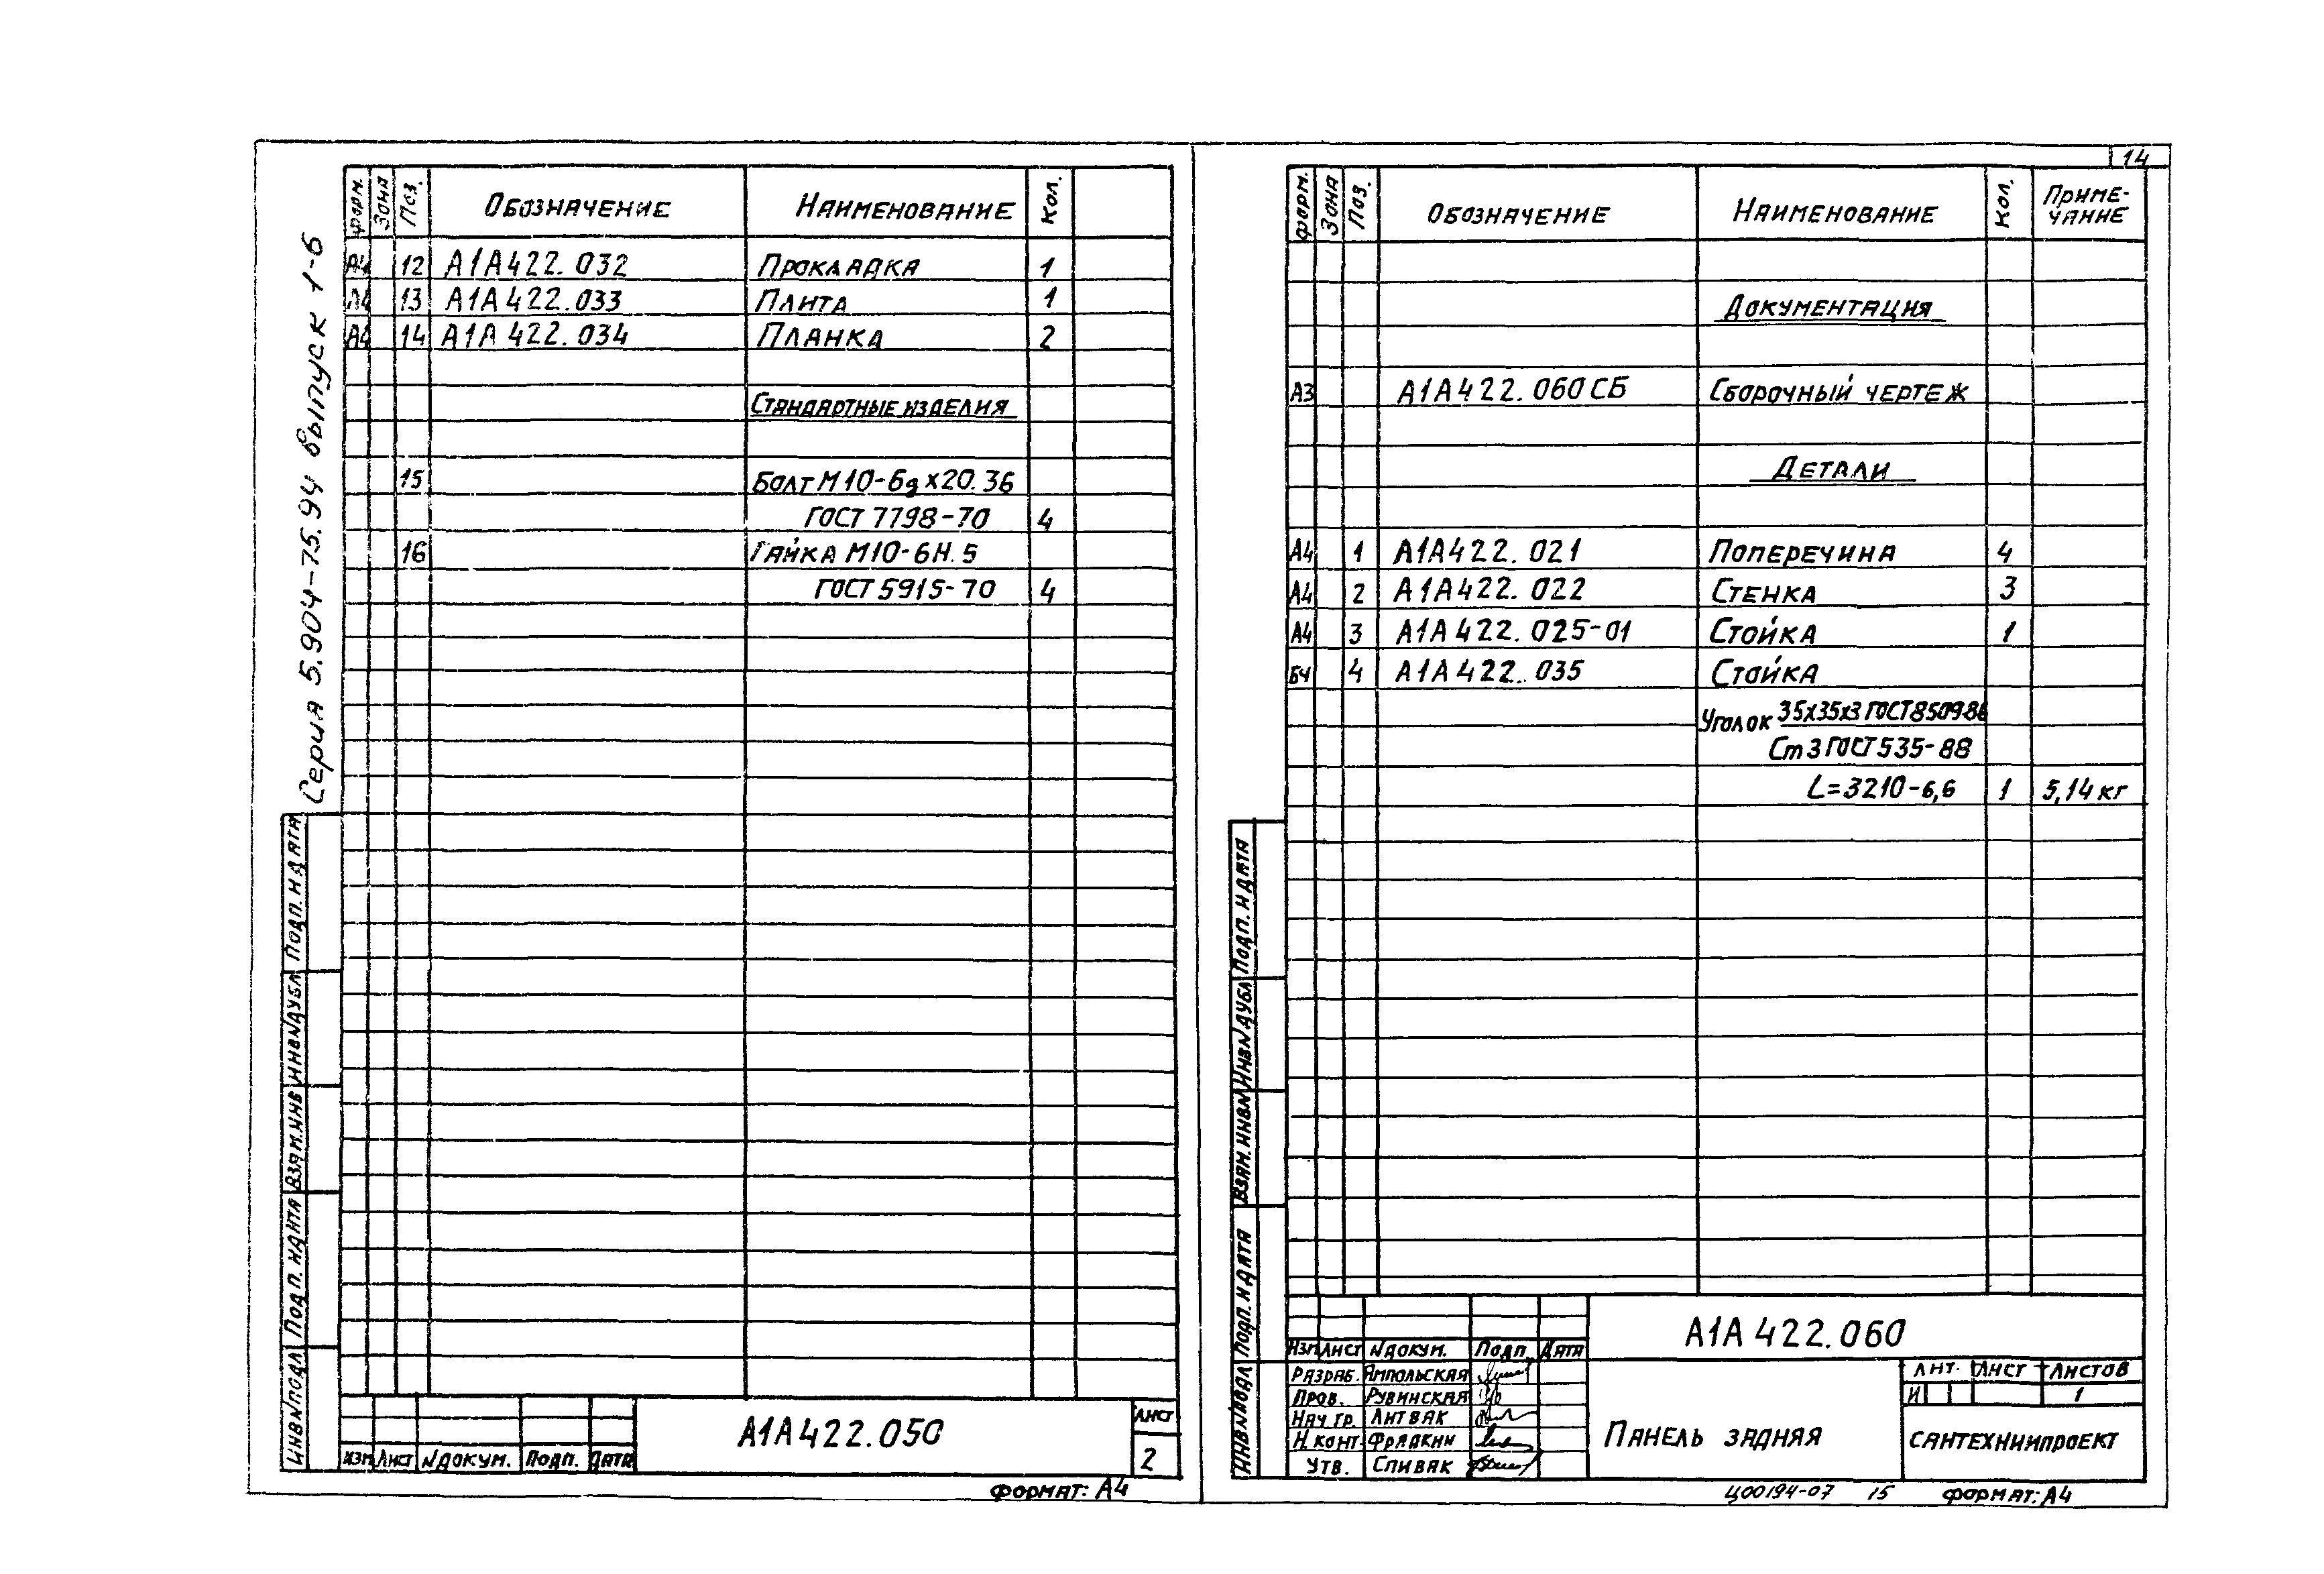 Серия 5.904-75.94 выпуск 1-6
Форм. Зона Поз. Обозначение Наименование Кол.
А4 12 А1А422.032 Прокладка 1
А4 13 А1А422.033 Плита 1
А4 14 А1А422.034 Планка 2
Стандартные изделия
15 Болт М10-6gх20.36
ГОСТ 7798-70 4
16 Гайка М10-6Н.5
ГОСТ 5915-70 4
Инв№подл Подп. и дата Взам.инв Инв№дубл Подп. и дата
Изм Лист №докум. Подп. Дата
А1А422.050
Лист
2
Формат: А4
14
Форм. Зона Поз. Обозначение Наименование Кол. Приме-
чание
Документация
А3 А1А422.060СБ Сборочный чертеж
Детали
А4 1 А1А422.021 Поперечина 4
А4 2 А1А422.022 Стенка 3
А4 3 А1А422.025-01 Стойка 1
БЧ 4 А1А422.035 Стойка
Уголок 35х35х3 ГОСТ8509-86
Ст3 ГОСТ535-88
L=3210-6,6 1 5,14 кг
Инв№подл Подп. и дата Взам.инв№ Инв№дубл Подп. и дата
Изм Лист №докум. Подп. Дата
Разраб. Ямпольская
Пров. Рувинская
Нач гр. Литвак
Н.конт. Фрадкин
Утв. Спивак
А1А422.060
Панель задняя
Лит. Лист Листов
И 1
САНТЕХНИИПРОЕКТ
Ц00194-07 15 Формат: А4